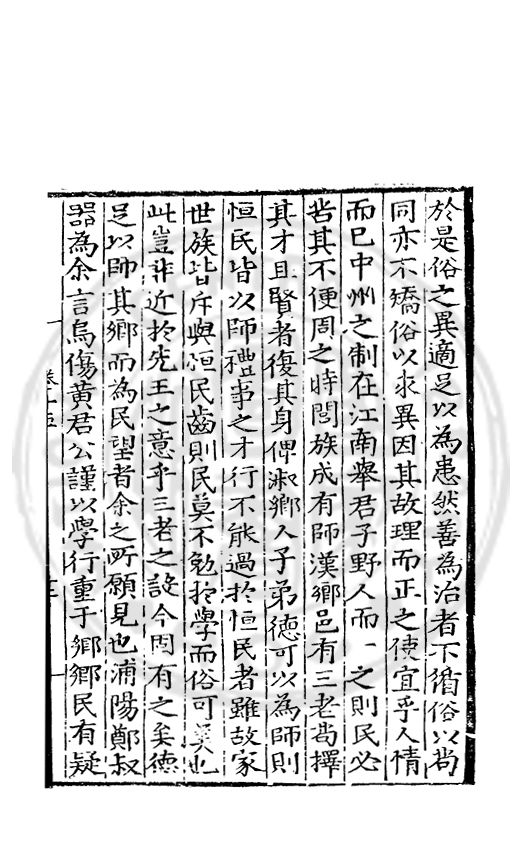 於是俗之異適足以為患然善為治者不循俗以尚
同亦不矯俗以求異因其故理而正之使宜乎人情
而已中州之制在江南舉君子野人而一之則民必
告其不便周之時閭族咸有師漢鄉邑有三老尚擇
其才且賢者復其身俾淑鄉人子弟德可以為師則
恒民皆以師禮事之才行不能過於恒民者雖故家
世族皆斥與恒民齒則民莫不勉於學而俗可美也
此豈非近於先王之意乎三老之設今固有之矣德
足以師其鄉而為民望者余之所願見也浦陽鄭叔
器為余言烏傷黃君公謹以學行重于鄉鄉民有疑